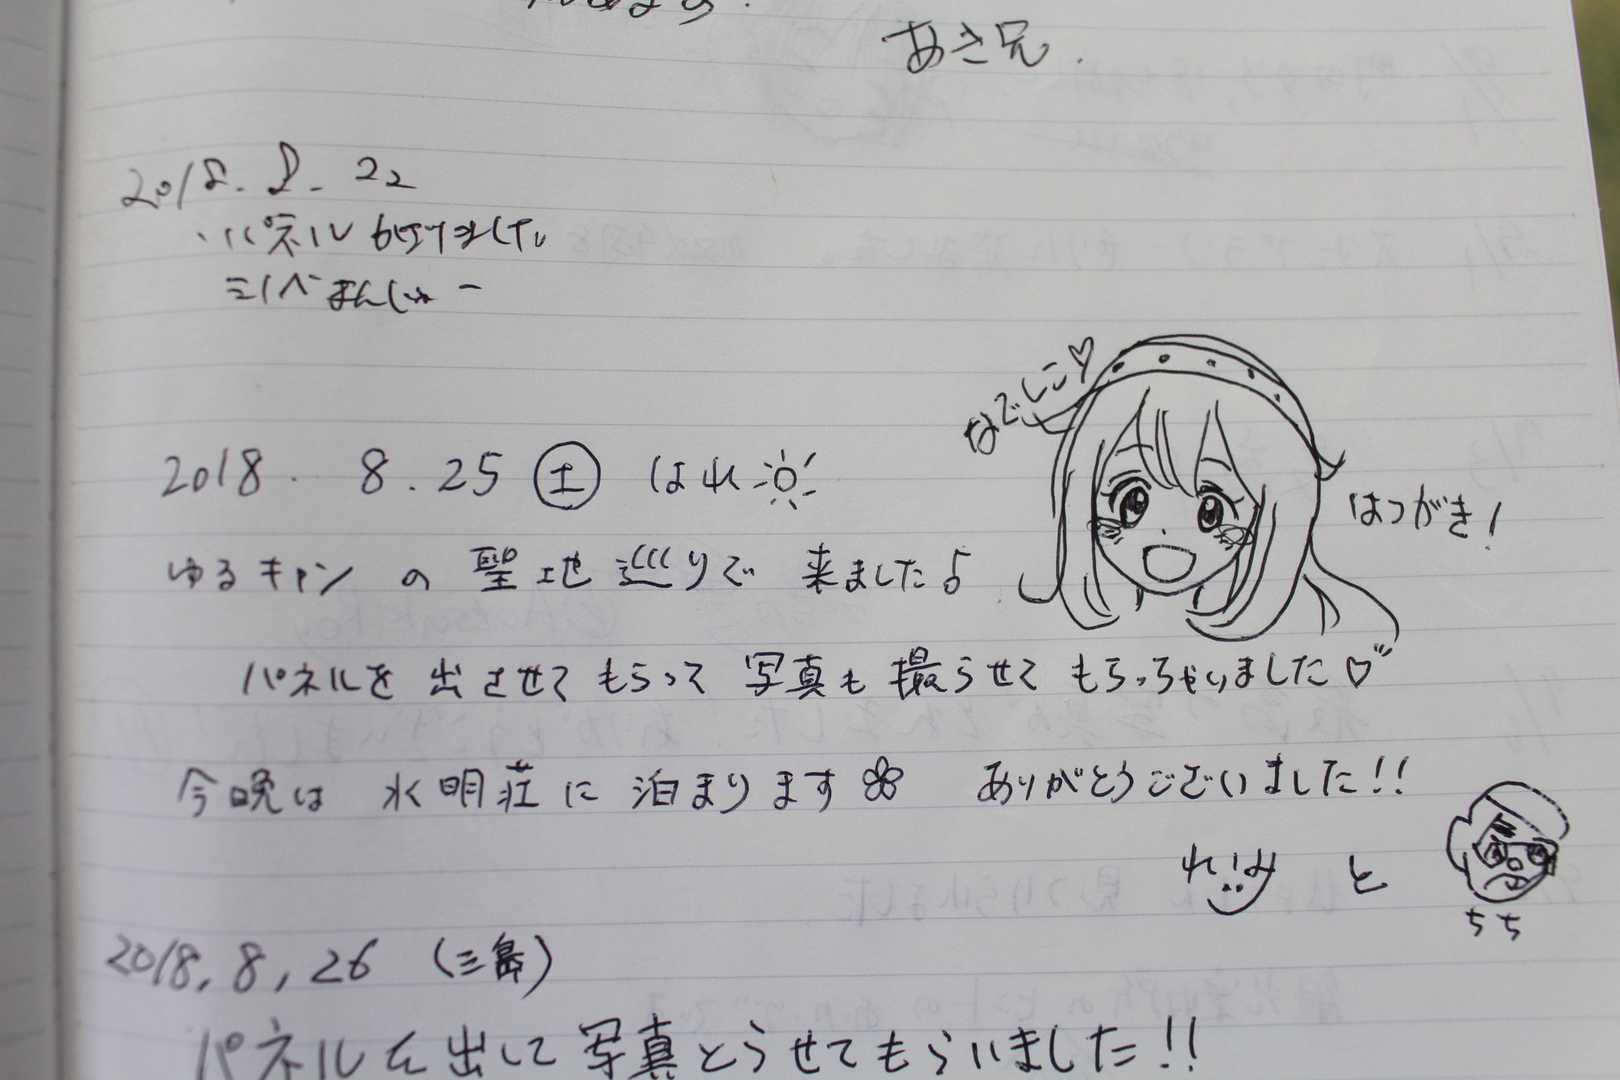 あき兄.
2018.8.22
パネル
2018. 8.25 ㊏ はれ
なでしこ♡
はつがき!
ゆるキャンの聖地巡りで来ました♪
パネルを出させてもらって写真も撮らせてもらっちゃいました♡
今晩は水明荘に泊まります ありがとうございました!!
と
ちち
2018.8,26 (三島)
パネルを出して写真とらせてもらいました!!